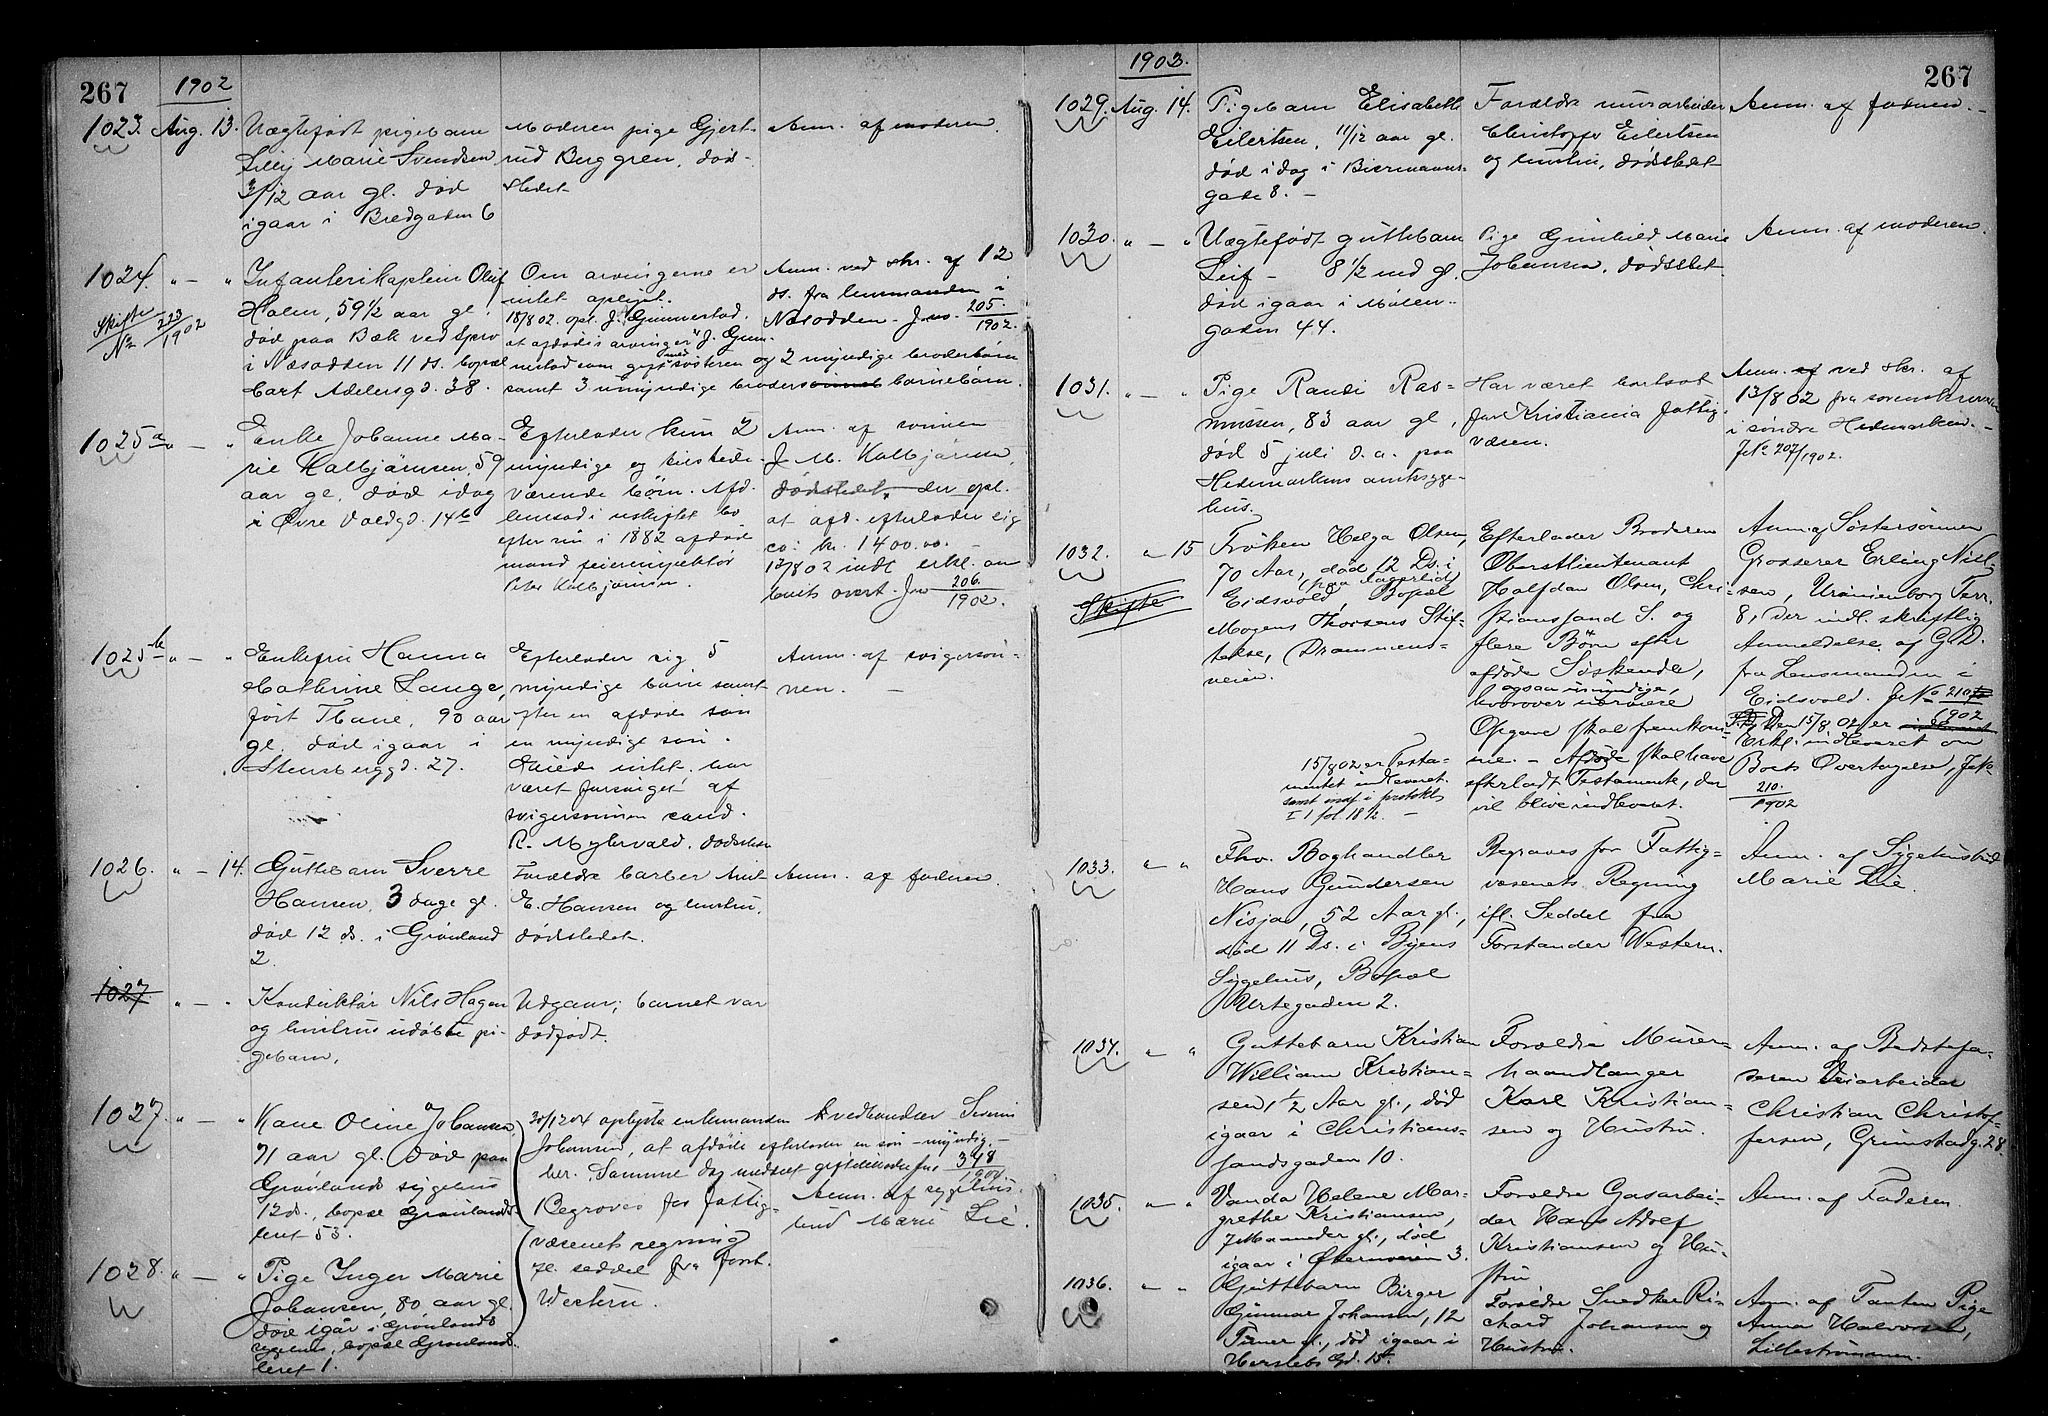 267
1902
1023. Aug. 13. Uægtefødt pigebarn
Lilly Marie Svendsen
3/12 aar gl. død
igaar i Bredgaden 6
Moderen pige Gjert-
rud Berggren, død-
stedet
Anm. af moderen.
1024. " — " Infanterikaptein Oluf
Holm, 59 1/2 aar gl.
død paa Bæk ved Spro
i Næsodden 11 ds. bopæl
Cort Adelersgd. 38.
Skifte
No 223/1902
Om arvingerne er
intet oplyst.
18/8 02. opl. J. Gunnestad.
at afdødes arvinger er J. Gun-
nestad som gift med søsteren og 2 myndige broderbørn
samt 3 umyndige broders børnebørn.
Anm. ved skr. af 12
ds. fra lensmanden i
Næsodden. J.no. 205/1902.
1025 a " — " Enke Johanne Ma-
rie Kolbjørnsen, 59
aar gl. død idag
i Øvre Voldgd. 14 b
Efterlader kun 2
myndige og tilstede-
værende børn. Afd.
hensad i uskiftet bo
efter sin i 1882 afdøde
mand feierinspektør
Peter Kolbjørnsen.
Anm. af sønnen
J. M. Kolbjørnsen,
dødstedet, der opl.
at afd. efterlader sig
ca: kr. 1400.00.
13/8 02 indl. erkl. om
boets overt. J.no 206/1902.
1025 b " — " Enkefru Hanna
Cathrine Lange,
født Thane, 90 aar
gl. død igaar i
Stensberggd. 27.
Efterlader sig 5
myndige børn samt
efter en afdød søn
en myndig søn.
Eiede intet, har
været forsørget af
svigersønnen cand.
R. Myhrvold, dødsstedet
Anm. af svigersøn-
nen. —
1026. " — 14. Guttebarn Sverre
Hansen, 3 dage gl.
død 12 ds. i Grønland
2.
Forældre barber Anit
E. Hansen og hustru,
dødstedet.
Anm. af faderen.
1027. " — " Konduktør Nils Hagen
og hustrus udøbte pi-
gebarn,
Udgaar; barnet var
dødfødt.
1027. " — " Kone Oline Johansen,
71 aar gl. død paa
Grønlands sygehus
12 ds., bopæl Grønlands-
leret 53.
30/12 04 oplyste enkemanden Hvedhandler Severin
Johansen, at afdøde efterlader en søn – myndig. –
her. Samme dag
348/1904
Begraves for fattig-
væsenets regning
ifl. seddel fra forst.
Western.
Anm. af sygehus-
bud Marie Lie.
1028. " — " Pige Inger Marie
Johansen, 80 aar gl.
død igår i Grønlands
sygehus, bopæl Grønlands-
leret 1.
1903.
267
1029. Aug. 14. Pigebarn Elisabeth
Eilertsen, 11/12 aar gl.
død idag i Biermanns-
gade 8. –
Forældre murarbeider
Christoffer Eilertsen
og hustru, dødstedet
Anm. af faderen. –
1030. " — " Uægtefødt guttebarn
Leif – 8 1/2 md gl.
død igaar i Møller-
gaden 44.
Pige Gunhild Marie
Johansen, dødstedet.
Anm. af moderen.
1031. " — " Pige Randi Ras-
mussen, 83 aar gl.,
død 5 juli d.a. paa
Hedemarkens amtssyge-
hus.
Har været bortsat
for Kristiania fattig-
væsen.
Anm. af ved skr. af
13/8 02 fra sorenskriveren
i søndre Hedemarken. –
J.No 207/1902.
1032. " — 15 Frøken Helga Olsen,
70 Aar, død 12 Ds. i
Eidsvold, Bopæl
Mogens Thorsens Stif-
telse, Drammens-
veien.
Skifte
Efterlader Broderen
Oberstlieutenant
Halfdan Olsen, Chri-
stianssand S. og
flere Børn efter
afdøde Søskende,
ogsaa umyndige,
hvorover nærmere
Opgave skal fremkom-
me. – Afdøde skal have
efterladt Testamente, der
vil blive indleveret.
15/8 02 er Testa-
mentet indleveret
samt indf. i protokol
I 1 fol. 182. –
Anm. af Søstersønnen
Grosserer Erling Niel-
sen, Uranienborg Terr.
8, der indl. skriftlig
Anmeldelse af G. D.
fra Lensmanden i
Eidsvold. J.No 210/1902
Den 15/8 02 er
Erkl. indleveret om
Boets Overtagelse, J.No
210/1902
1033. " " Fhv. Boghandler
Hans Gundersen
Nisja, 52 Aar gl.,
død 11 Ds. i Byens
Sygehus, Bopæl
Urtegaden 2.
Begraves for Fattig-
væsenets Regning
ifl. Seddel fra
Forstander Western.
Anm. af Sygehusbud
Marie Lie.
1034. " — " Guttebarn Kristian
William Kristian-
sen 1 1/2 Aar gl., død
igaar i Christians-
sandsgaden 10.
Forældre Murer-
haandlanger
Karl Kristian-
sen og Hustru.
Anm. af Bedstefa-
deren Veiarbeider
Christian Christof-
fersen, Grimstadg. 28.
1035. " — " Vanda Helene Mar-
grethe Kristiansen,
7 Maaneder gl., død
igaar i Økernveien 3.
Forældre Gasarbei-
der Hans Adolf
Kristiansen og Hu-
stru
Anm. af Faderen.
1036. " — " Guttebarn Birger
Gunnar Johansen, 12
Timer gl., død igaar i
Herslebs Gd. 15.
Forældre Snedker Ri-
chard Johansen og
Hustru.
Anm. af Tanten Pige
Anna Halvorsen,
Lillestrømmen.